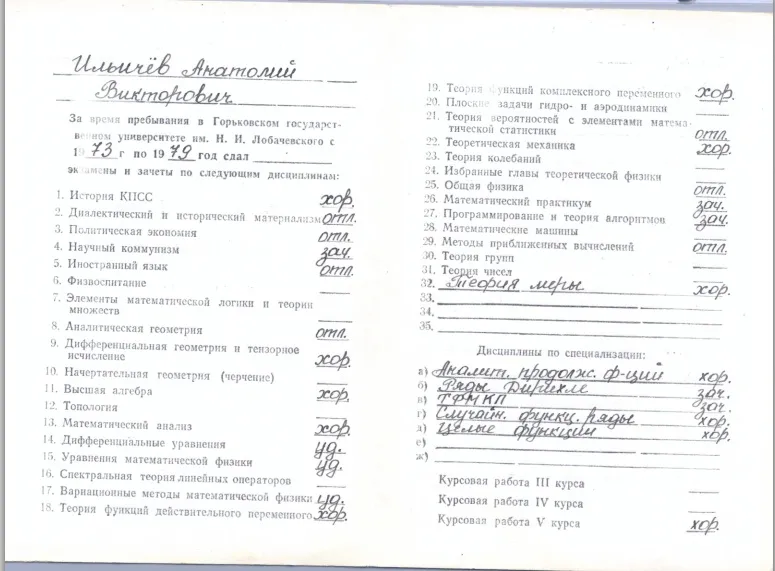 Ильичёв Анатолий
Викторович
За время пребывания в Горьковском государст-
венном университете им. Н. И. Лобачевского с
1973 г по 1979 год сдал
экзамены и зачеты по следующим дисциплинам:
1. История КПСС хор.
2. Диалектический и исторический материализм отл.
3. Политическая экономия отл.
4. Научный коммунизм зач.
5. Иностранный язык отл.
6. Физвоспитание
7. Элементы математической логики и теории
множеств
8. Аналитическая геометрия отл.
9. Дифференциальная геометрия и тензорное
исчисление хор.
10. Начертательная геометрия (черчение)
11. Высшая алгебра хор.
12. Топология
13. Математический анализ хор.
14. Дифференциальные уравнения уд.
15. Уравнения математической физики уд.
16. Спектральная теория линейных операторов
17. Вариационные методы математической физики уд.
18. Теория функций действительного переменного хор.
19. Теория функций комплексного переменного хор.
20. Плоские задачи гидро- и аэродинамики
21. Теория вероятностей с элементами матема-
тической статистики отл.
22. Теоретическая механика хор.
23. Теория колебаний
24. Избранные главы теоретической физики
25. Общая физика отл.
26. Математический практикум зач.
27. Программирование и теория алгоритмов зач.
28. Математические машины
29. Методы приближенных вычислений отл.
30. Теория групп
31. Теория чисел
32. Теория меры хор.
33.
34.
35.
Дисциплины по специализации:
а) Аналит. продолж. ф-ций хор.
б) Ряды Дирихле зач.
в) ТФМКП зач.
г) Случайн. функц. ряды хор.
д) Целые функции хор.
е)
ж)
Курсовая работа III курса
Курсовая работа IV курса
Курсовая работа V курса хор.